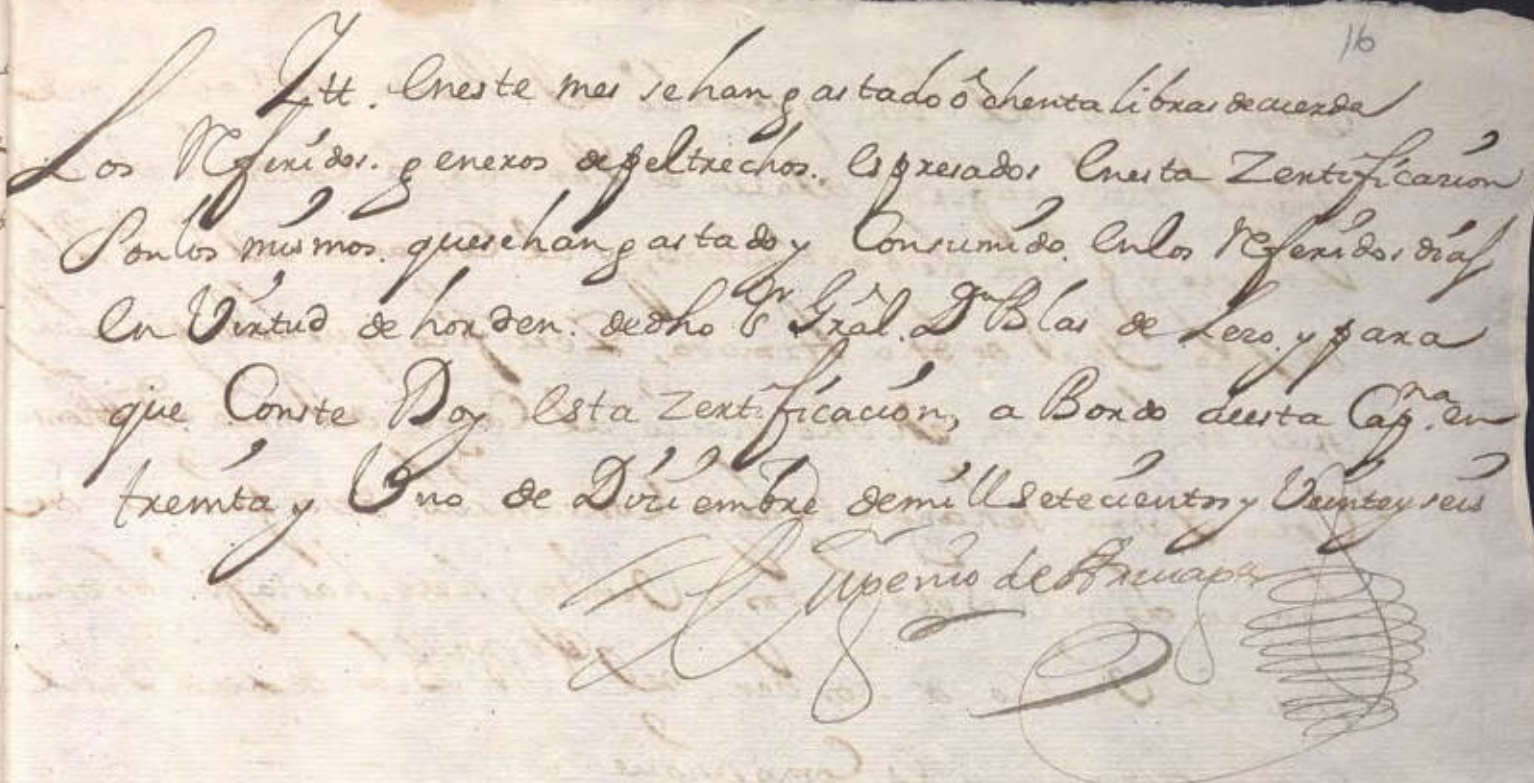 16
Itt. Eneste mes sehan gastado ochenta libras decuerda
Los Referidos. generos depeltrechos. Espresados Enesta Zertificazion
Sonlos mismos. quesehan gastado y Consumido. Enlos Referidos dias
En Virtud de horden. dedho Sr Gral. Dn Blas de Lezo. y para
que Conste Doy Esta Zertificacion, a Bordo deesta Capna. en
treinta y Uno de Diziembre demill setecientos y Veinteyseis
Eugenio de